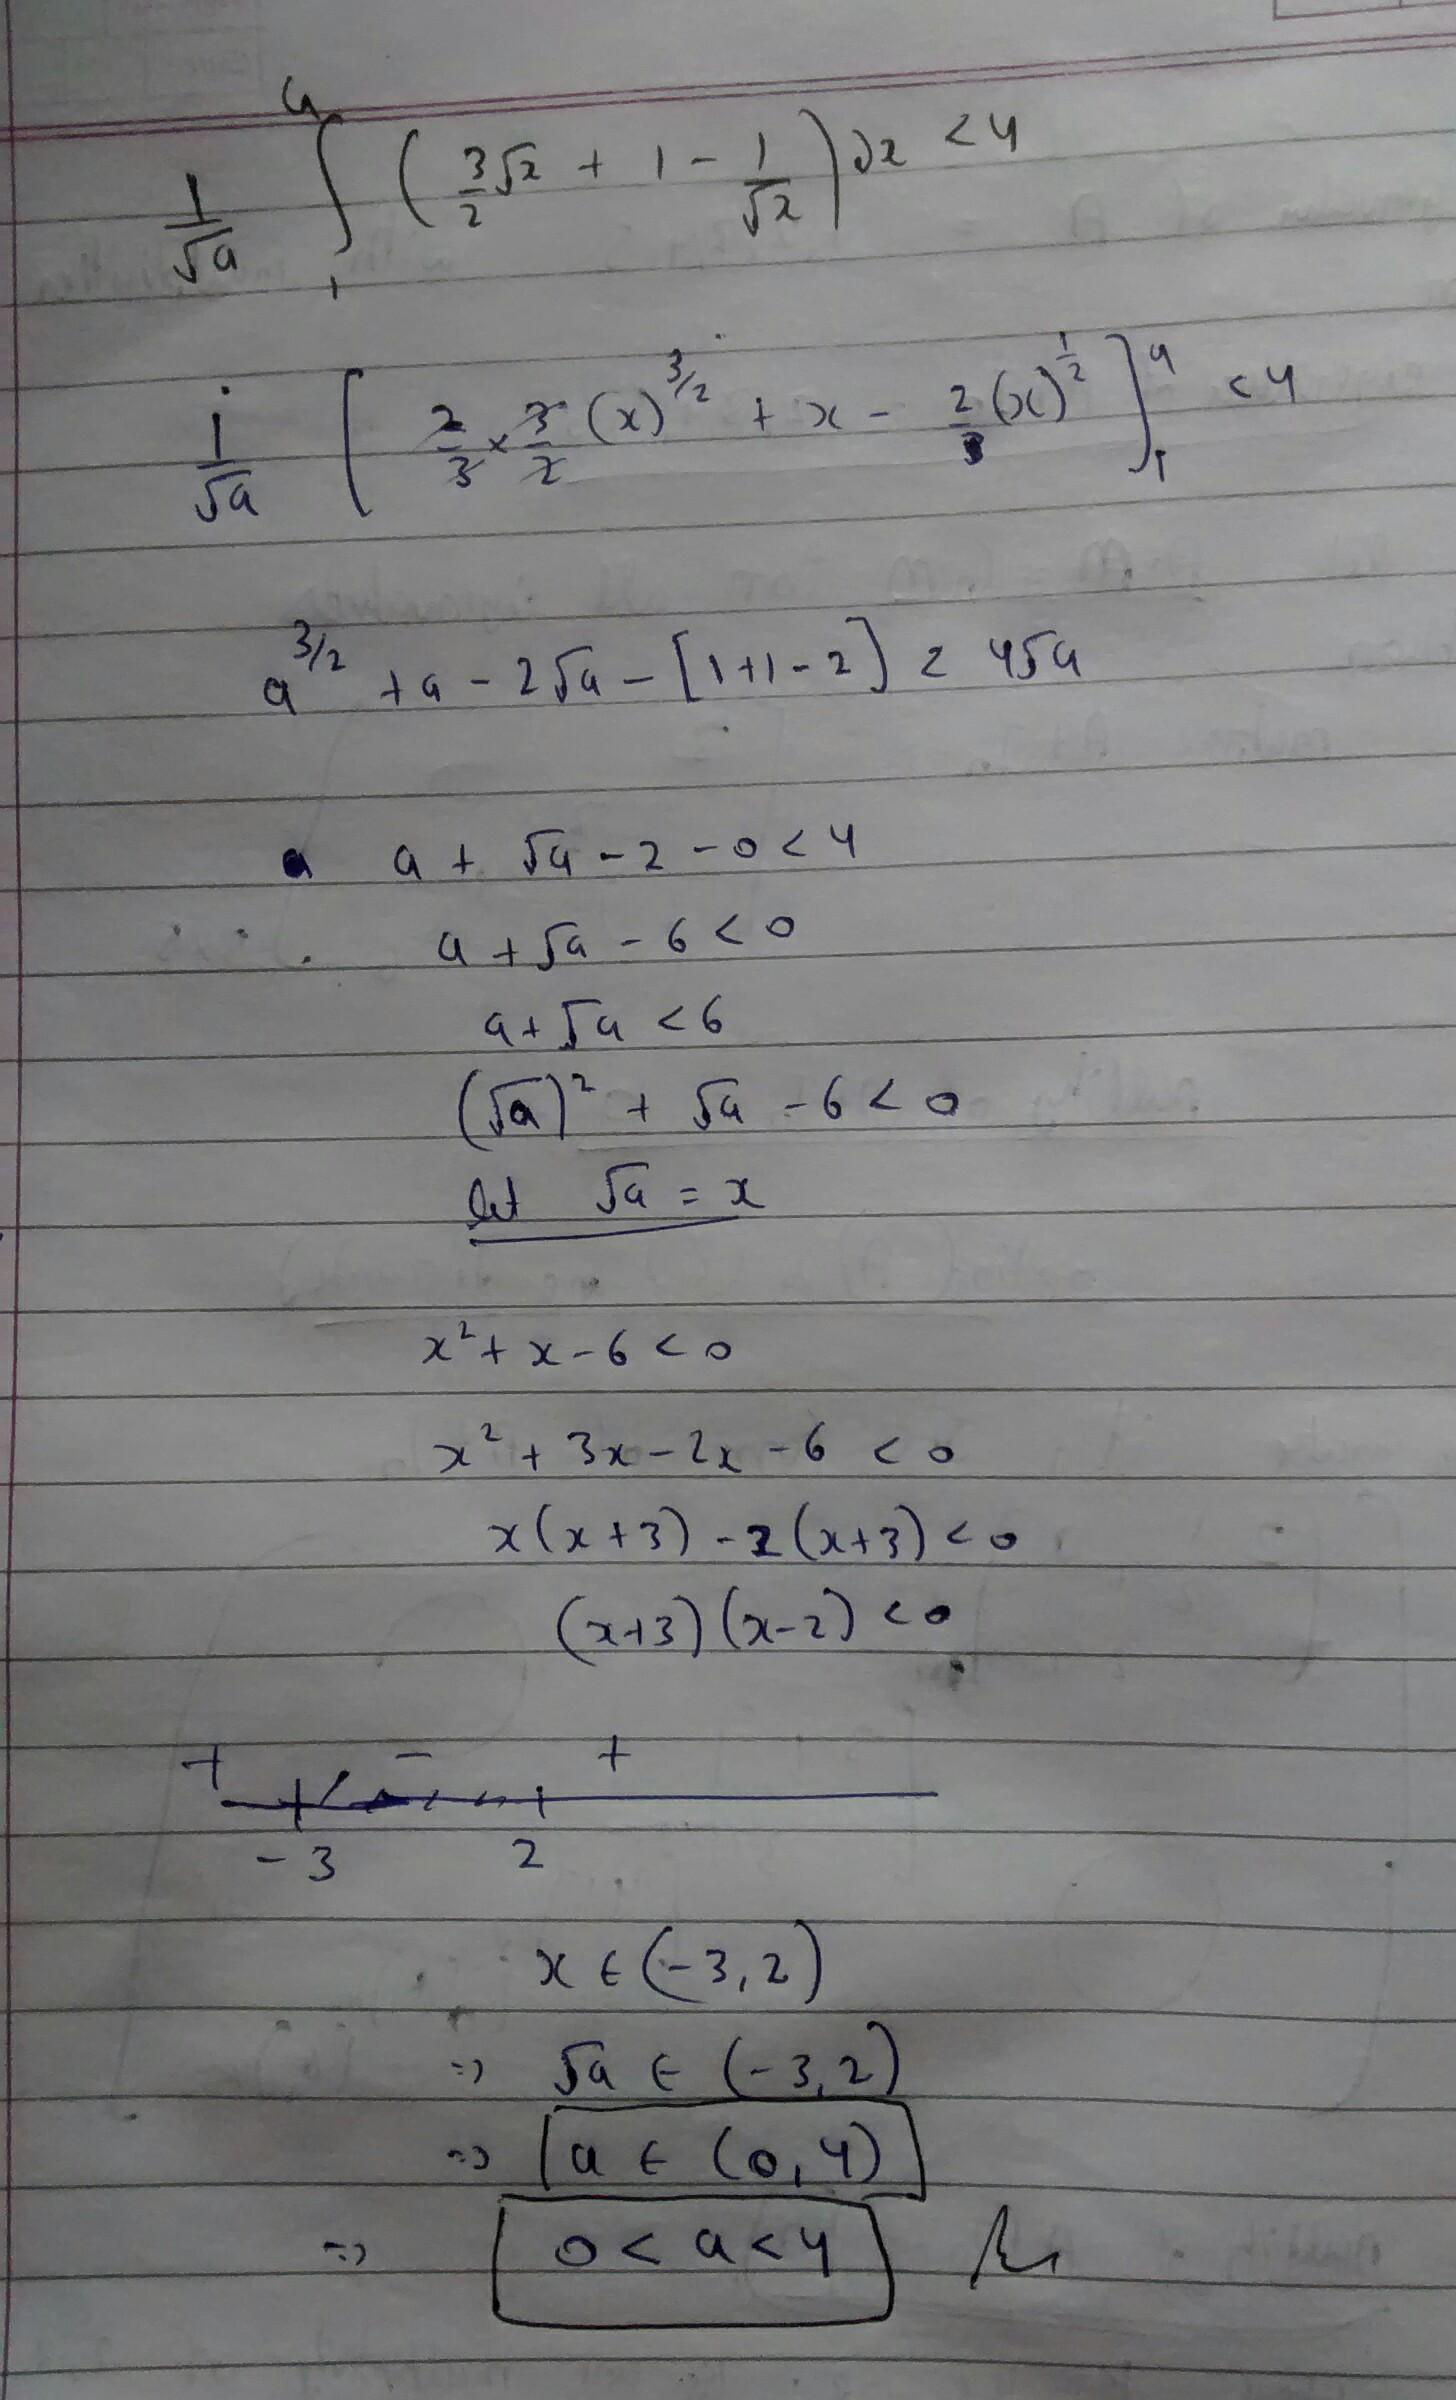 1/√a ∫₁ᵃ (3/2 √x + 1 - 1/√x) dx < 4
1/√a [2/3 × 3/2 (x)^3/2 + x - 2(x)^1/2]₁ᵃ < 4
a^3/2 + a - 2√a - [1+1-2] < 4√a
a + √a - 2 - 0 < 4
a + √a - 6 < 0
a + √a < 6
(√a)² + √a - 6 < 0
let √a = x
x² + x - 6 < 0
x² + 3x - 2x - 6 < 0
x(x+3) - 2(x+3) < 0
(x+3)(x-2) < 0
+ - +
-3 2
x ∈ (-3, 2)
=> √a ∈ (-3, 2)
=> a ∈ (0, 4)
=> 0 < a < 4